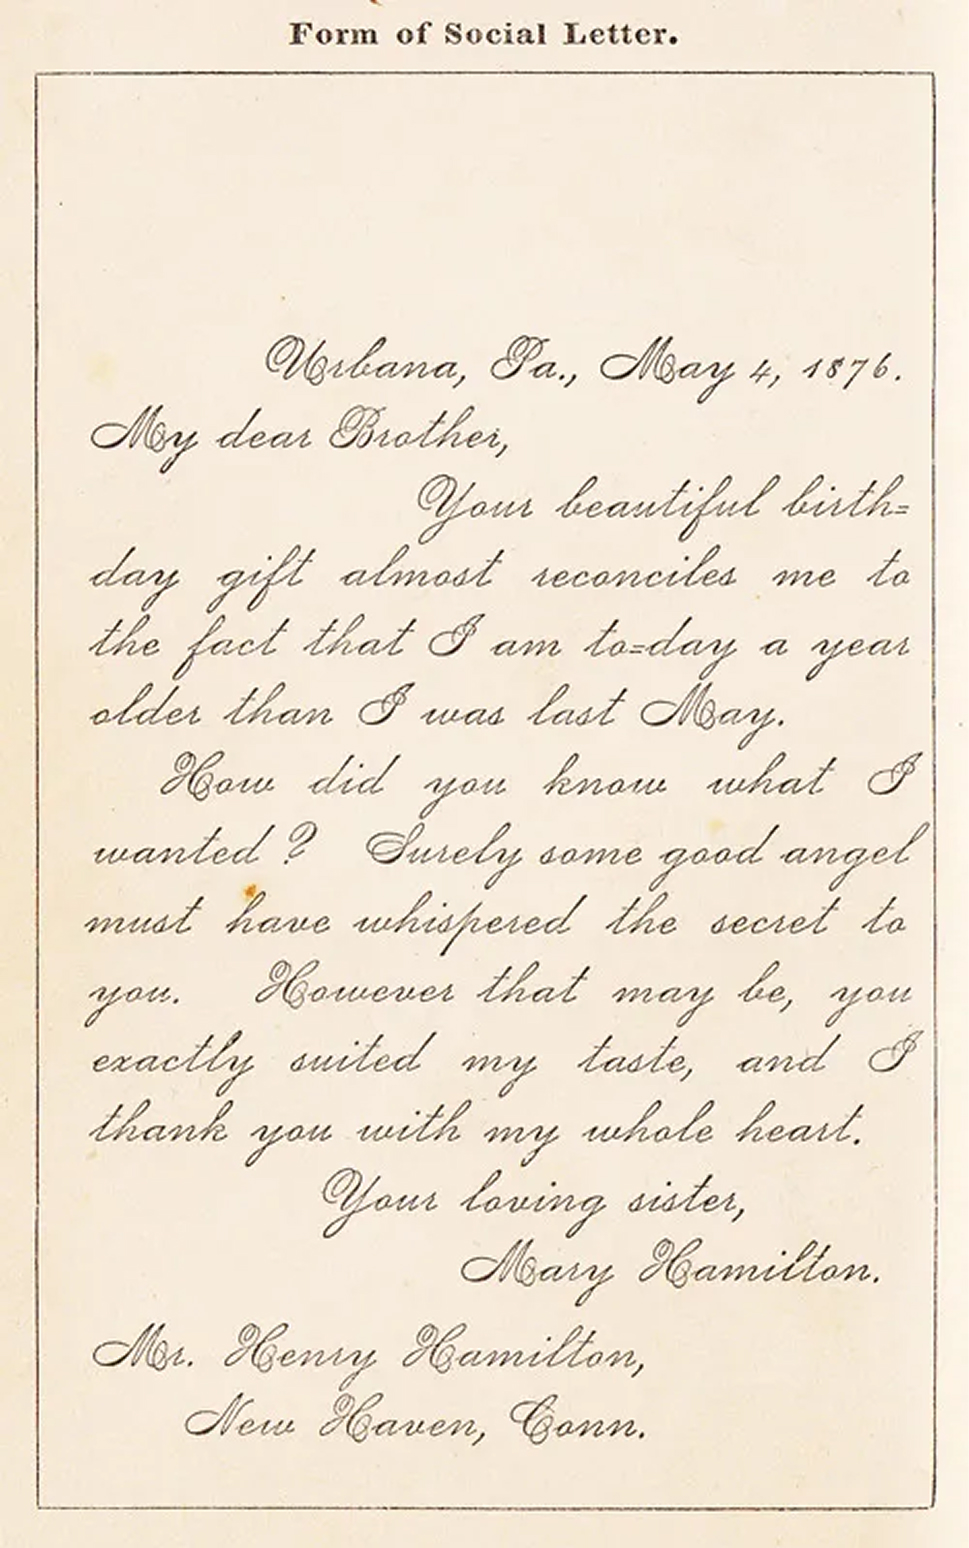 Form of Social Letter.
Urbana, Pa., May 4, 1876.
My dear Brother,
Your beautiful birth=
day gift almost reconciles me to
the fact that I am to=day a year
older than I was last May.
How did you know what I
wanted? Surely some good angel
must have whispered the secret to
you. However that may be, you
exactly suited my taste, and I
thank you with my whole heart.
Your loving sister,
Mary Hamilton.
Mr. Henry Hamilton,
New Haven, Conn.